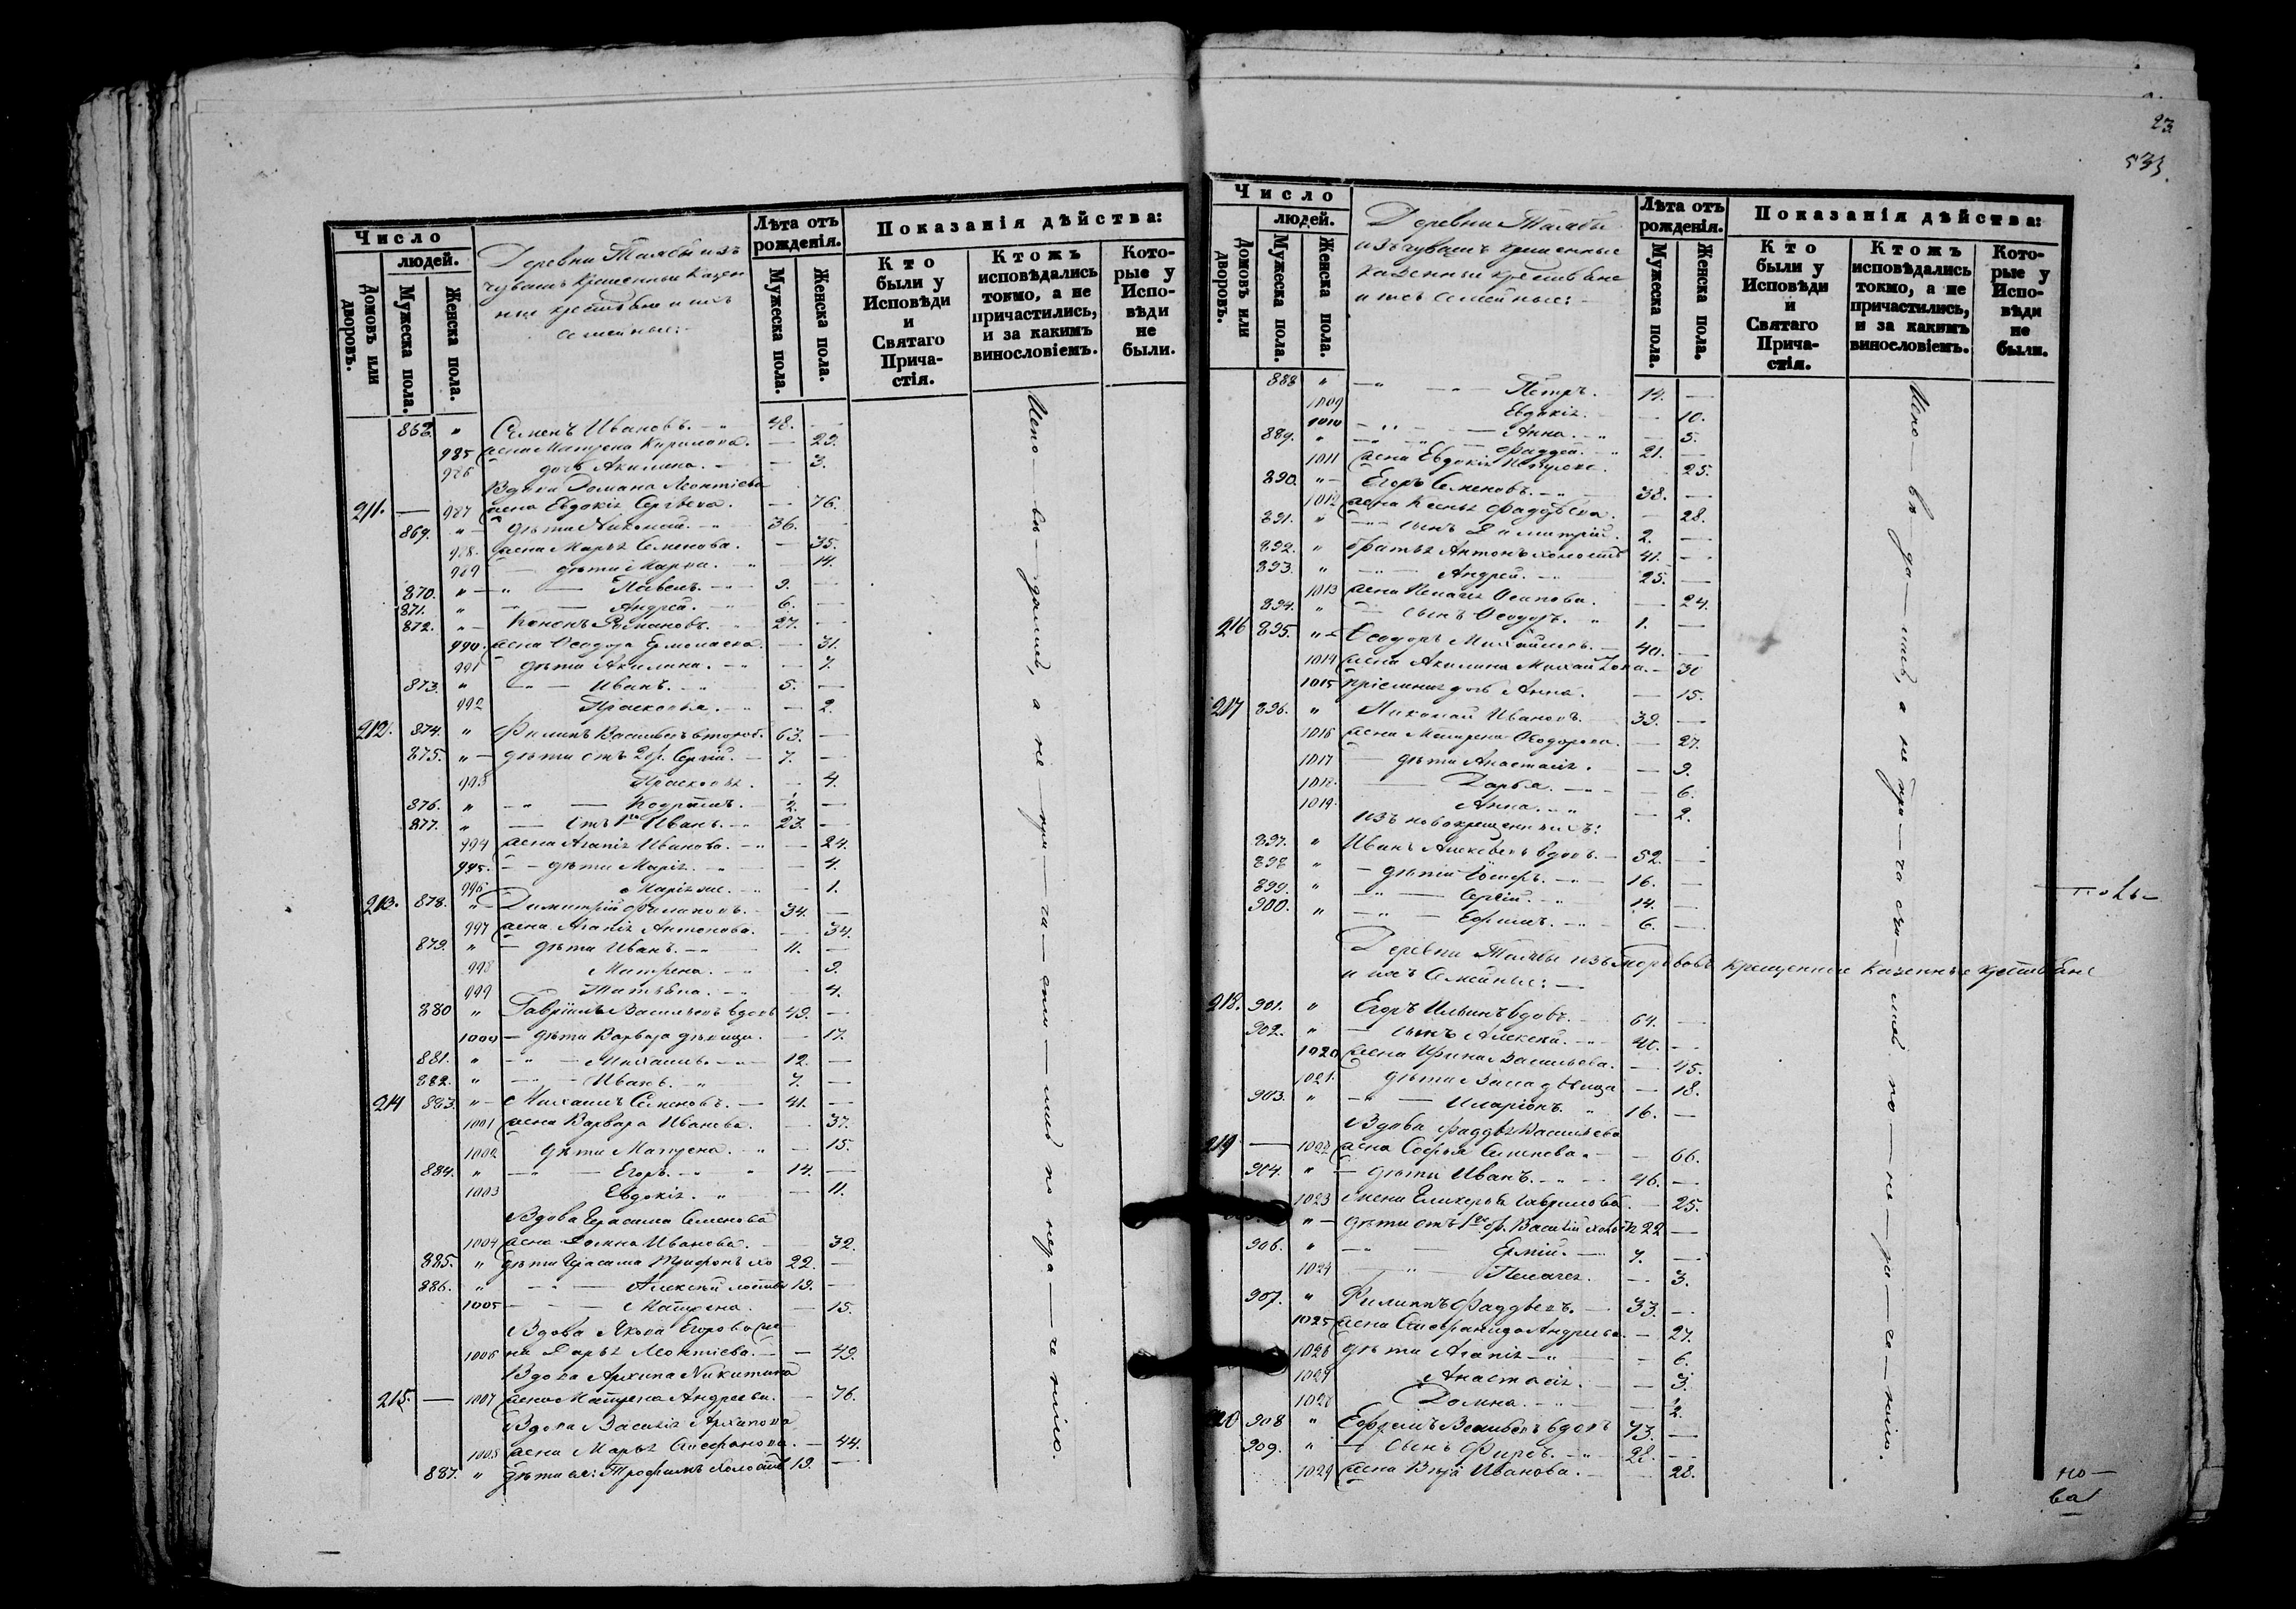 Число
людей.
Домовъ или дворовъ.
Мужеска пола.
Женска пола.
Деревни Талабы изъ
чувашъ крещенныи казен
ные крестьяне и ихъ
семейные:-
Лѣта отъ рожденія.
Мужеска пола.
Женска пола.
Показанія дѣйства:
Кто были у Исповѣди и Святаго Причастія.
Ктожъ исповѣдались токмо, а не причастились, и за какимъ винословіемъ.
Которые у Исповѣди не были.
868. " Семенъ Ивановъ. 48. —
985 жена Матрена Кирилова. — 29.
986 дочь Акилина. — 3.
Вдова Романа Леонтіева
211. — 987 жена Евдокія Сергѣева. — 76.
869. " дѣти Николай. 36. —
988. жена Марья Семенова. — 35.
989 дѣти Марѳа. — 14.
870. " Павелъ. 9. —
871. " Андрей. 6. —
872. " Кононъ Романовъ. 27. —
990. жена Ѳеодора Ермолаева. — 31.
991 дѣти Акилина. — 7.
873. " Иванъ. 5. —
992 Прасковья. — 2.
212. 874. " Филипъ Васильевъ второб. 63. —
875. " дѣти отъ 2 бр. Сергій. 7. —
993 Прасковья. — 4.
876. " Кодратъ. 2. —
877. " Отъ 1го Иванъ. 23. —
994 жена Агапія Иванова. — 24.
995. дѣти Марія. — 4.
996 Марія же. — 1.
213. 878. " Димитрій Филиповъ. 34. —
997 жена Агапія Антонова. — 34.
879. " дѣти Иванъ. 11. —
998 Матрена. — 9.
999 Татьяна. — 4.
880 " Гавріилъ Васильевъ вдовъ 49. —
1000 дѣти Варвара дѣвица. — 17.
881. " Михаилъ. 12. —
882. " Иванъ. 7. —
214 883. " Михаилъ Семеновъ. 41. —
1001 жена Варвара Иванова. — 37.
1002 дѣти Матрена. — 15.
884. " Егоръ. 14. —
1003 Евдокія. — 11.
Вдова Герасима Семенова
1004 жена Домна Иванова. — 32.
885. " дѣти Герасима Трифонъ хо 22. —
886. " Алексѣй лостые 19. —
1005 Матрена. — 15.
Вдова Якова Егорова же
1006 на Дарья Леонтіева. — 49.
Вдова Архипа Никитина
215. — 1007 жена Матрена Андреева. — 76.
Вдова Василія Архипова
1008 жена Марья Стефанова. — 44.
887. " дѣти ея: Трофимъ холостъ 19. —
Испо — вѣ — дались, а не — при — ча — сти — лись по нера — ченію.
23.
533.
Число
людей.
Домовъ или дворовъ.
Мужеска пола.
Женска пола.
Деревни Талабы
изъ чувашъ крещенные
казенныи крестьяне
и ихъ семейные:-
Лѣта отъ рожденія.
Мужеска пола.
Женска пола.
Показанія дѣйства:
Кто были у Исповѣди и Святаго Причастія.
Ктожъ исповѣдались токмо, а не причастились, и за какимъ винословіемъ.
Которые у Исповѣди не были.
888 " Петръ. 14. —
1009 Евдокія. — 10.
1010 Анна. — 5.
889. " Фаддей. 21. —
1011 жена Евдокія — 25.
890. " Егоръ Семеновъ. 38. —
1012 жена Ксенья Фаддѣева. — 28.
891. " сынъ Димитрій. 2. —
892. " братья Антонъ холостъ 41. —
893. " Андрей. 25. —
1013 жена Пелагея Осипова. — 24.
894. " сынъ Ѳеодоръ. 1. —
216 895. " Ѳеодоръ Михайловъ. 40. —
1014 жена Акилина Михайлова. — 30
1015 пріемная дочь Анна. — 15.
217 896. " Николай Ивановъ. 39. —
1016 жена Матрена Ѳеодорова. — 27.
1017 дѣти Анастасія. — 9.
1018. Дарья. — 6.
1019. Анна. — 2.
изъ новокрещенныхъ:
897. " Иванъ Алексѣевъ вдовъ. 52. —
898 " дѣти 16. —
899. " Сергѣй. 14. —
900. " Ефимъ. 6. —
Деревни Талабы изъ крещенные казенные крестьяне
и ихъ семейные:—
218. 901. " Егоръ Ильинъ вдовъ. 64. —
902. " сынъ Алексѣй. 40. —
1020 жена Ирина Васильева. — 45.
1021. дѣти дѣвица — 18.
903. " Иларіонъ. 16. —
Вдова Фаддѣя Васильева
219 — 1022 жена Софья Семенова. — 66.
904. " дѣти Иванъ. 46. —
1023 жена Гликерья Гаврилова. — 25.
" дѣти отъ 1го бр. Василій холостъ 22 —
906. " 7. —
1024 Пелагея. — 3.
907. " Филиппъ Фаддѣевъ. 33. —
1025 жена Стефанида Андреева. — 27.
1026 дѣти Агапія — 6.
1027 Анастасія. — 3.
1028 Домна. — 2.
220 908 " Ефремъ Васильевъ вдовъ 73. —
909. " сынъ Фирсъ. 28. —
1029 жена Вѣра Иванова. — 28.
Испо — вѣ — да — лись, а не при — ча сти — лись по — не — ра — че — нію.
но—
ва